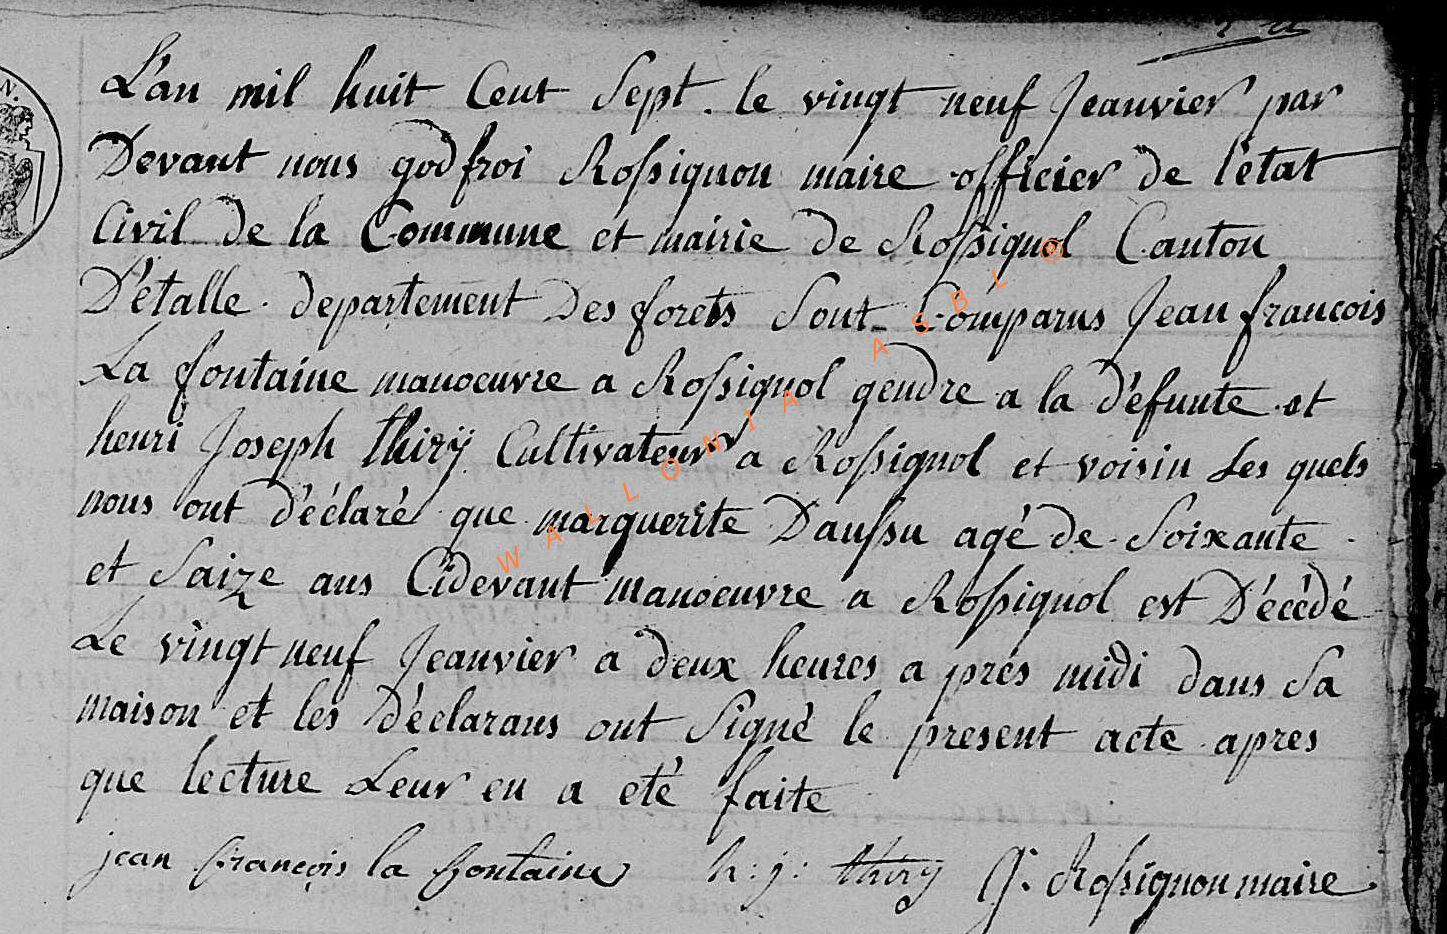 L'an mil huit Cent Sept. le vingt neuf Jeanvier par
Devant nous godfroi Rossignon maire officier de létat
Civil de la Commune et mairie de Rossignol Canton
D'étalle. departement Des forets Sont Comparus Jean francois
La fontaine manoeuvre a Rossignol gendre a la défunte et
henri Joseph thirÿ Cultivateur a Rossignol et voisin Les quels
nous ont déclaré que marguerite Daussu agé de Soixante
et Saize ans Cidevant manoeuvre a Rossignol est Décédé
Le vingt neuf Jeanvier a deux heures a prés midi dans Sa
maison et les déclarans ont Signé le present acte apres
que lecture Leur en a eté faite
jean françois la fontaine h: j: thiry G. Rossignon maire
WALLONIA ASBL ®